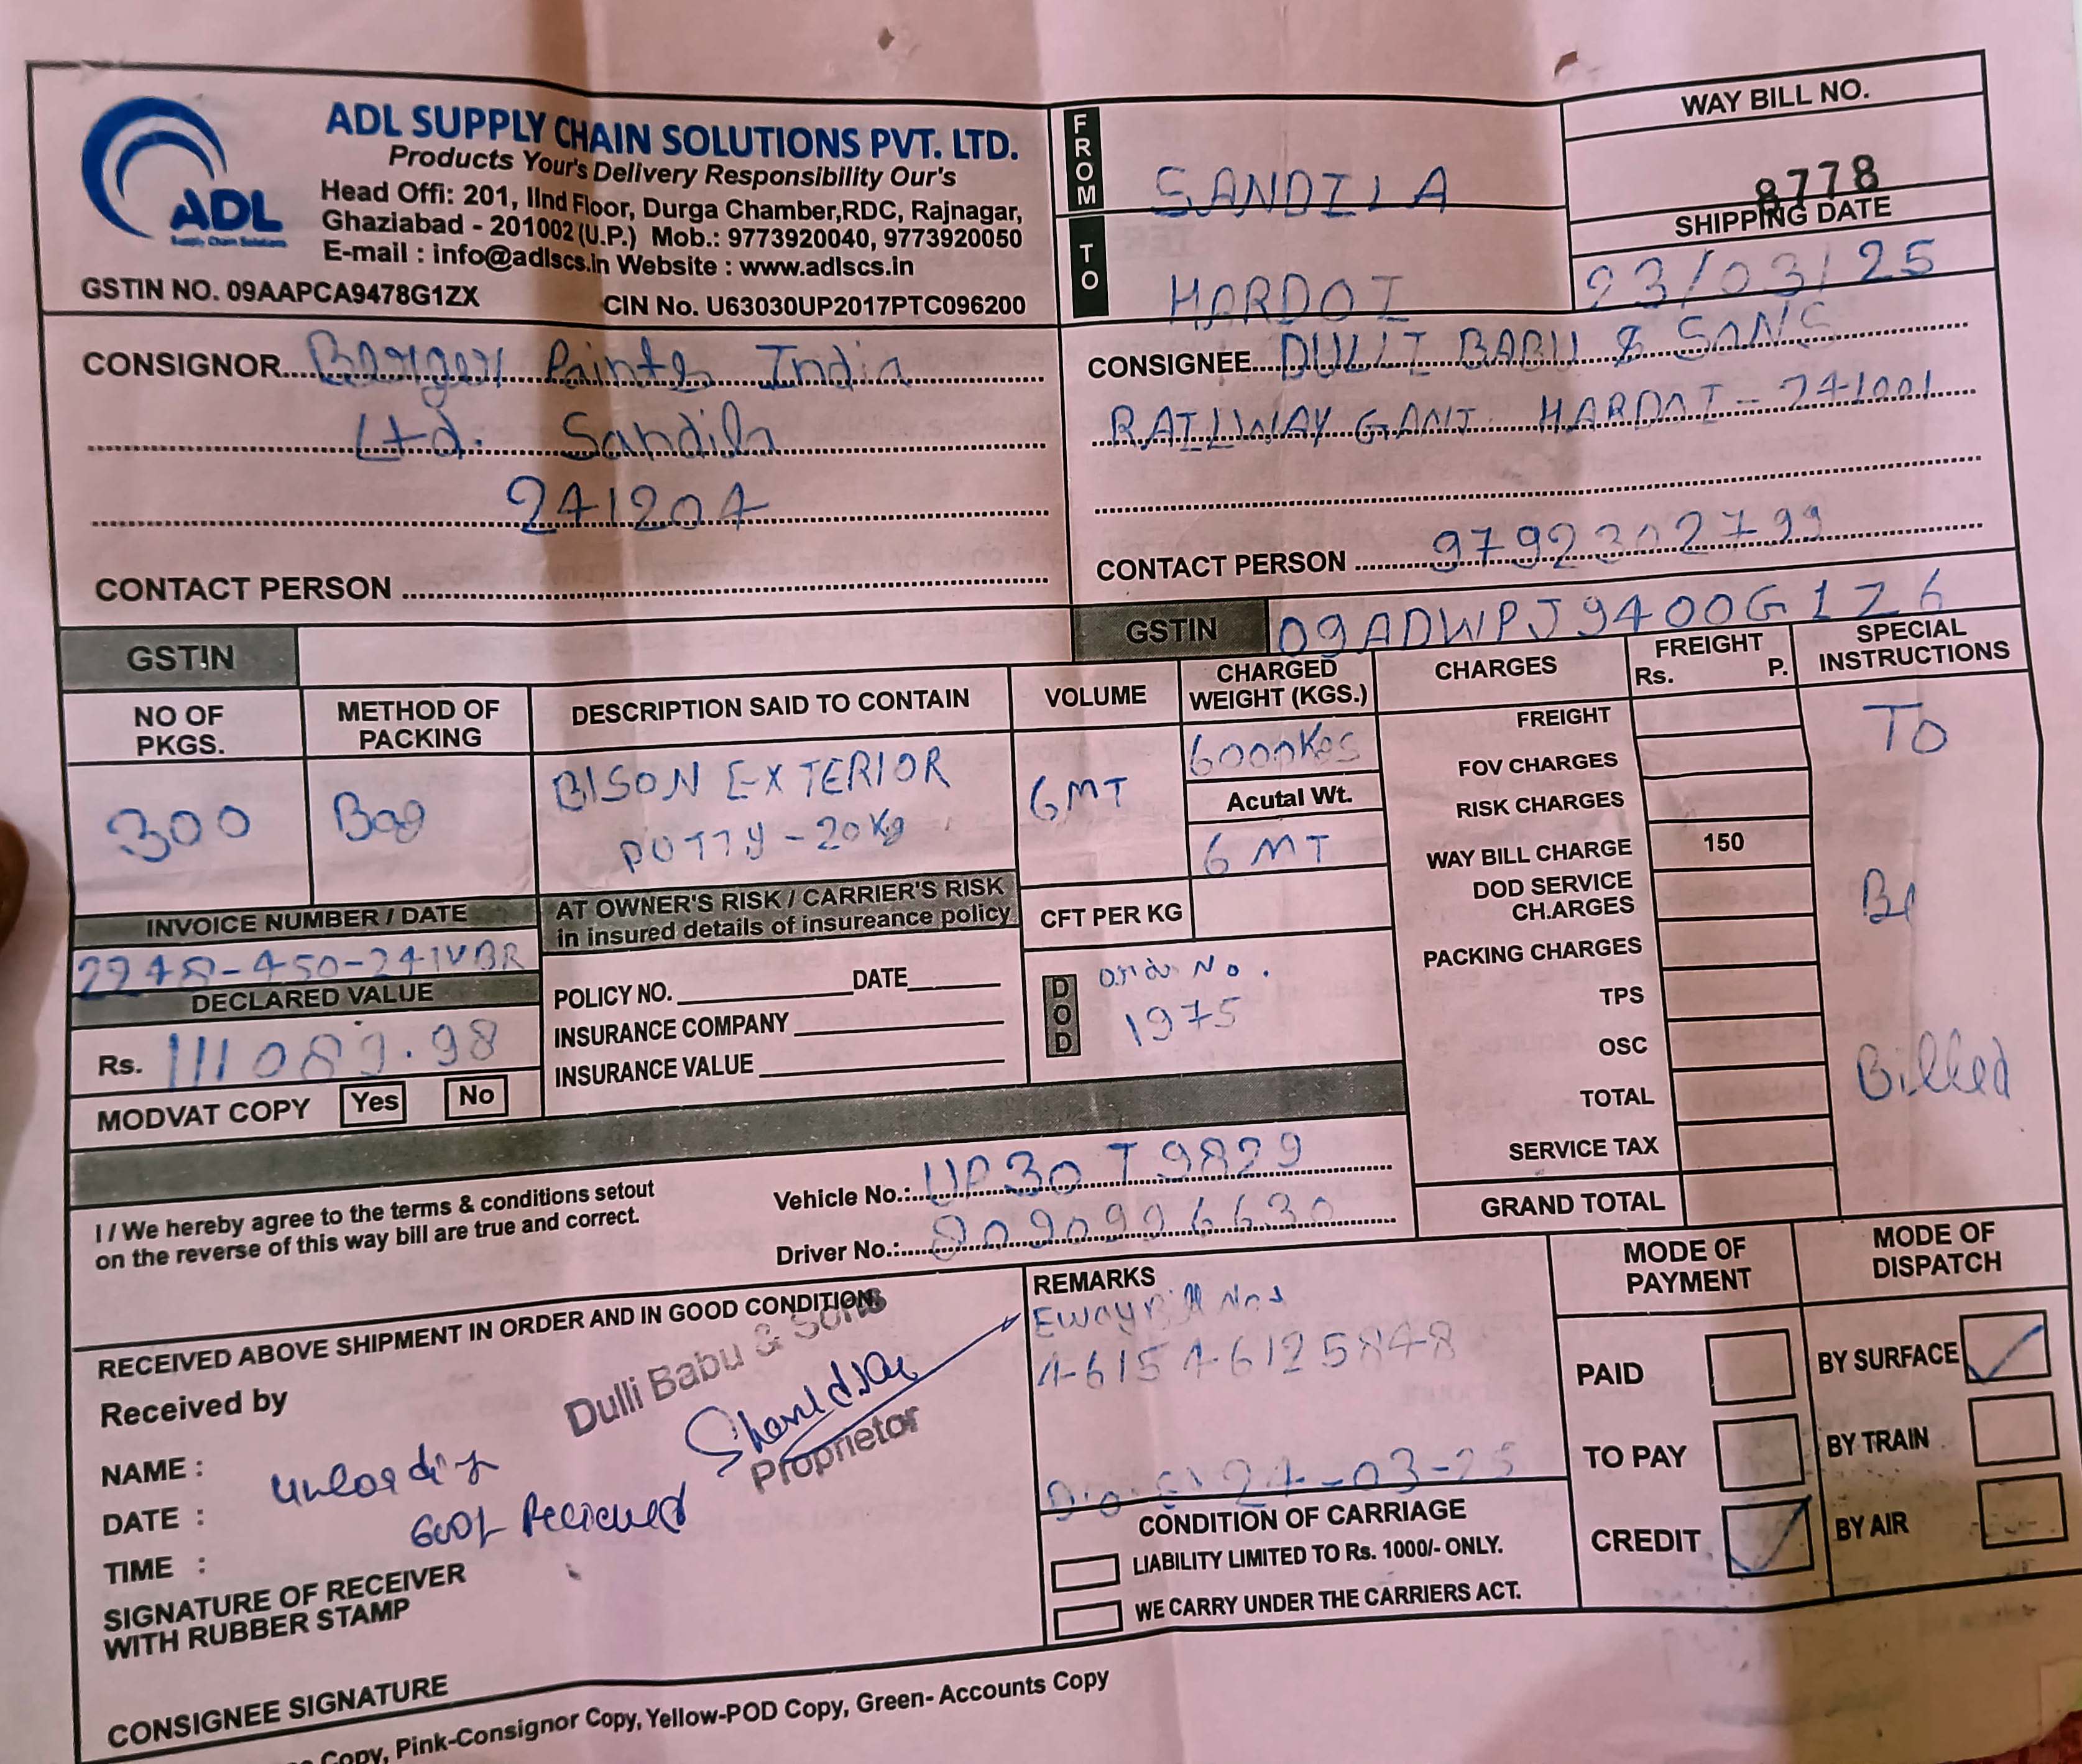 ADL SUPPLY CHAIN SOLUTIONS PVT. LTD.
Products Your's Delivery Responsibility Our's
Head Offi: 201, IInd Floor, Durga Chamber,RDC, Rajnagar,
Ghaziabad - 201002 (U.P.) Mob.: 9773920040, 9773920050
E-mail : info@adlscs.in Website : www.adlscs.in
GSTIN NO. 09AAPCA9478G1ZX CIN No. U63030UP2017PTC096200
ADL
Supply Chain Solutions
FROM SANDILA
TO HARDOI
WAY BILL NO.
8778
SHIPPING DATE
23/03/25
CONSIGNOR Berger Paints India
Ltd. Sandila
241204
CONTACT PERSON
CONSIGNEE DULLI BABU & SONS
RAILWAY GANJ HARDOI - 241001
CONTACT PERSON 9792302799
GSTIN
GSTIN 09ADWPJ9400G1Z6
NO OF PKGS.
METHOD OF PACKING
DESCRIPTION SAID TO CONTAIN
VOLUME
CHARGED WEIGHT (KGS.)
CHARGES
FREIGHT
Rs. P.
SPECIAL INSTRUCTIONS
300
Bag
BISON EXTERIOR
PUTTY - 20Kg
6MT
6000KGS
Acutal Wt.
6 MT
CFT PER KG
FREIGHT
FOV CHARGES
RISK CHARGES
WAY BILL CHARGE 150
DOD SERVICE CH.ARGES
PACKING CHARGES
TPS
OSC
TOTAL
SERVICE TAX
GRAND TOTAL
To
Be
Billed
INVOICE NUMBER / DATE
DECLARED VALUE
Rs. 111089.98
MODVAT COPY Yes No
AT OWNER'S RISK / CARRIER'S RISK
in insured details of insureance policy
POLICY NO. DATE
INSURANCE COMPANY
INSURANCE VALUE
DOD
Order No.
1975
I / We hereby agree to the terms & conditions setout
on the reverse of this way bill are true and correct.
Vehicle No.: UP30T9829
Driver No.: 9090996630
RECEIVED ABOVE SHIPMENT IN ORDER AND IN GOOD CONDITION
Received by
NAME :
DATE :
TIME :
unloading
Received
Dulli Babu & Sons
Proprietor
SIGNATURE OF RECEIVER
WITH RUBBER STAMP
CONSIGNEE SIGNATURE
REMARKS
EwayBill No
461546125848
24-03-25
CONDITION OF CARRIAGE
LIABILITY LIMITED TO Rs. 1000/- ONLY.
WE CARRY UNDER THE CARRIERS ACT.
MODE OF PAYMENT
PAID
TO PAY
CREDIT
MODE OF DISPATCH
BY SURFACE
BY TRAIN
BY AIR
Copy, Pink-Consignor Copy, Yellow-POD Copy, Green- Accounts Copy